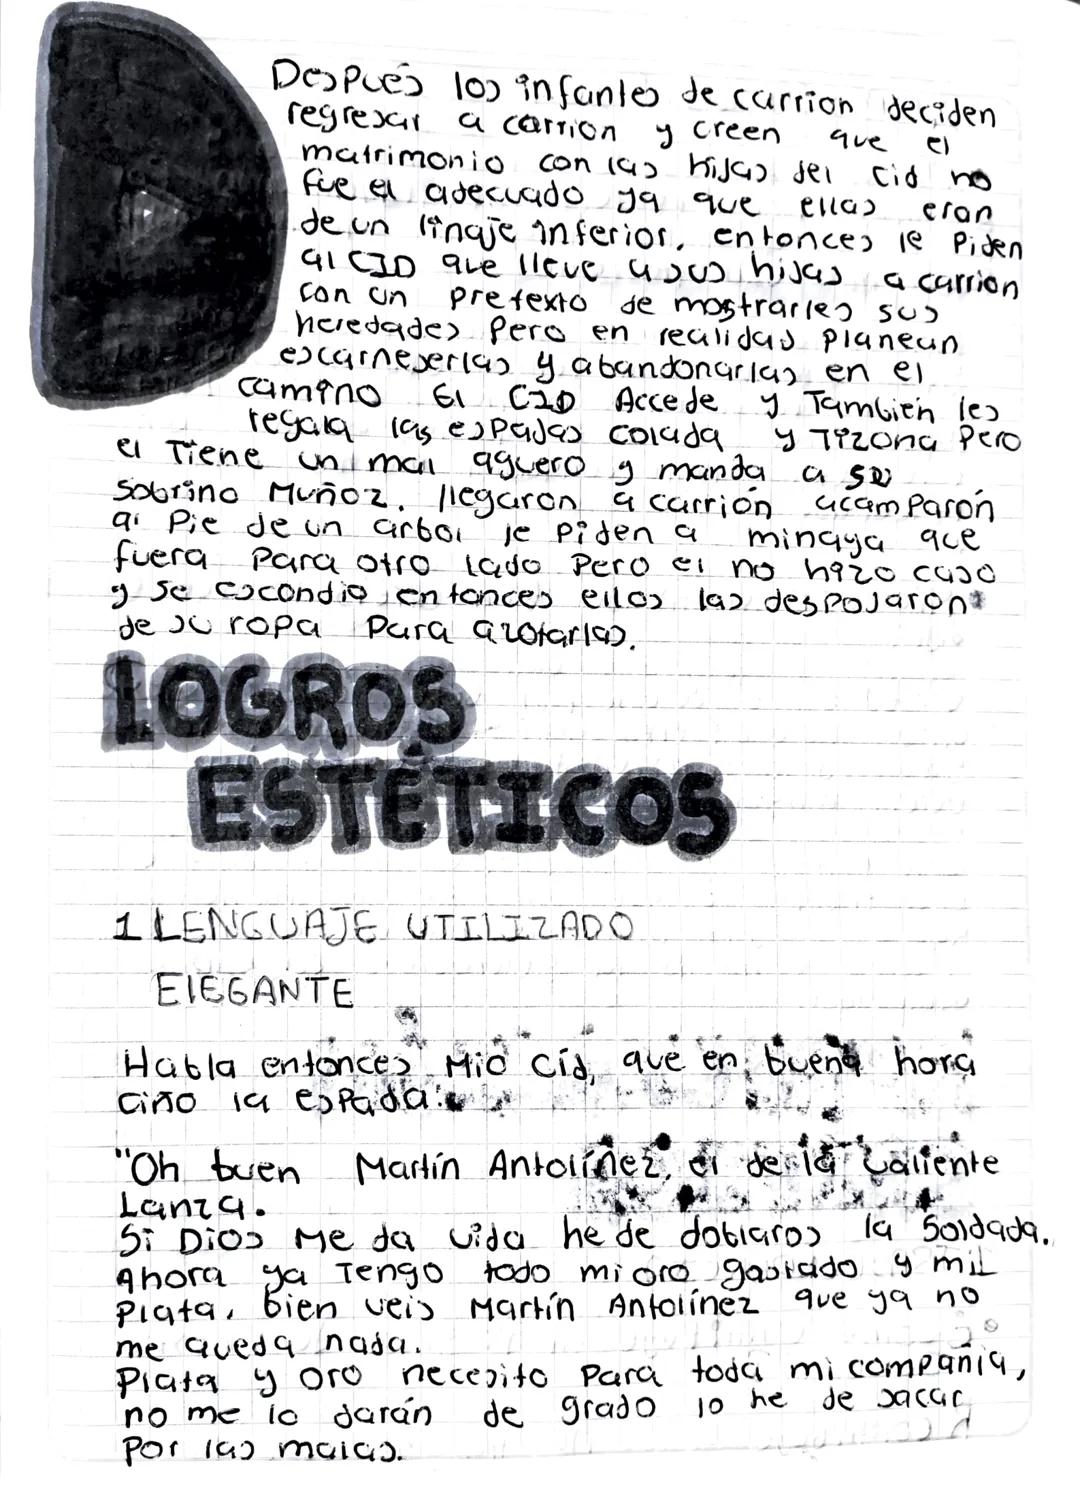 Después los infantes de carrion deciden
regresar a carrion y creen que el
matrimonio con las hijas del Cid no
fue el adecuado ya que ellas eran
de un linaje inferior, entonces le Piden
al CID que lleve a sus hijas a carrion
con un pretexto de mostrarles sus
heredades Pero en realidad Planean
escarneserlas y abandonarlas en el
camino El CID Accede y También les
regala las espadas colada y Tizona Pero
el Tiene un mal aguero y manda a su
Sobrino Muñoz, llegaron a carrión acamparon
al Pie de un arbol le Piden a minaya que
fuera Para otro lado Pero el no hizo caso
y se escondio entonces ellos las despojaron
de su ropa Para azotarlas.
LOGROS
ESTÉTICOS
1 LENGUAJE UTILIZADO
ElEGANTE
Habla entonces Mio Cid, que en buena hora
Ciño la espada:
"Oh buen Martín Antolínez, el de la valiente
Lanza.
Si Dios Me da vida he de doblaros la Soldada.
Ahora ya Tengo todo mi oro gastado y mil
Plata, bien veis Martín Antolínez que ya no
me queda nada.
Plata y oro necesito Para toda mi compañia,
no me lo darán de grado lo he de sacar
Por las malas.